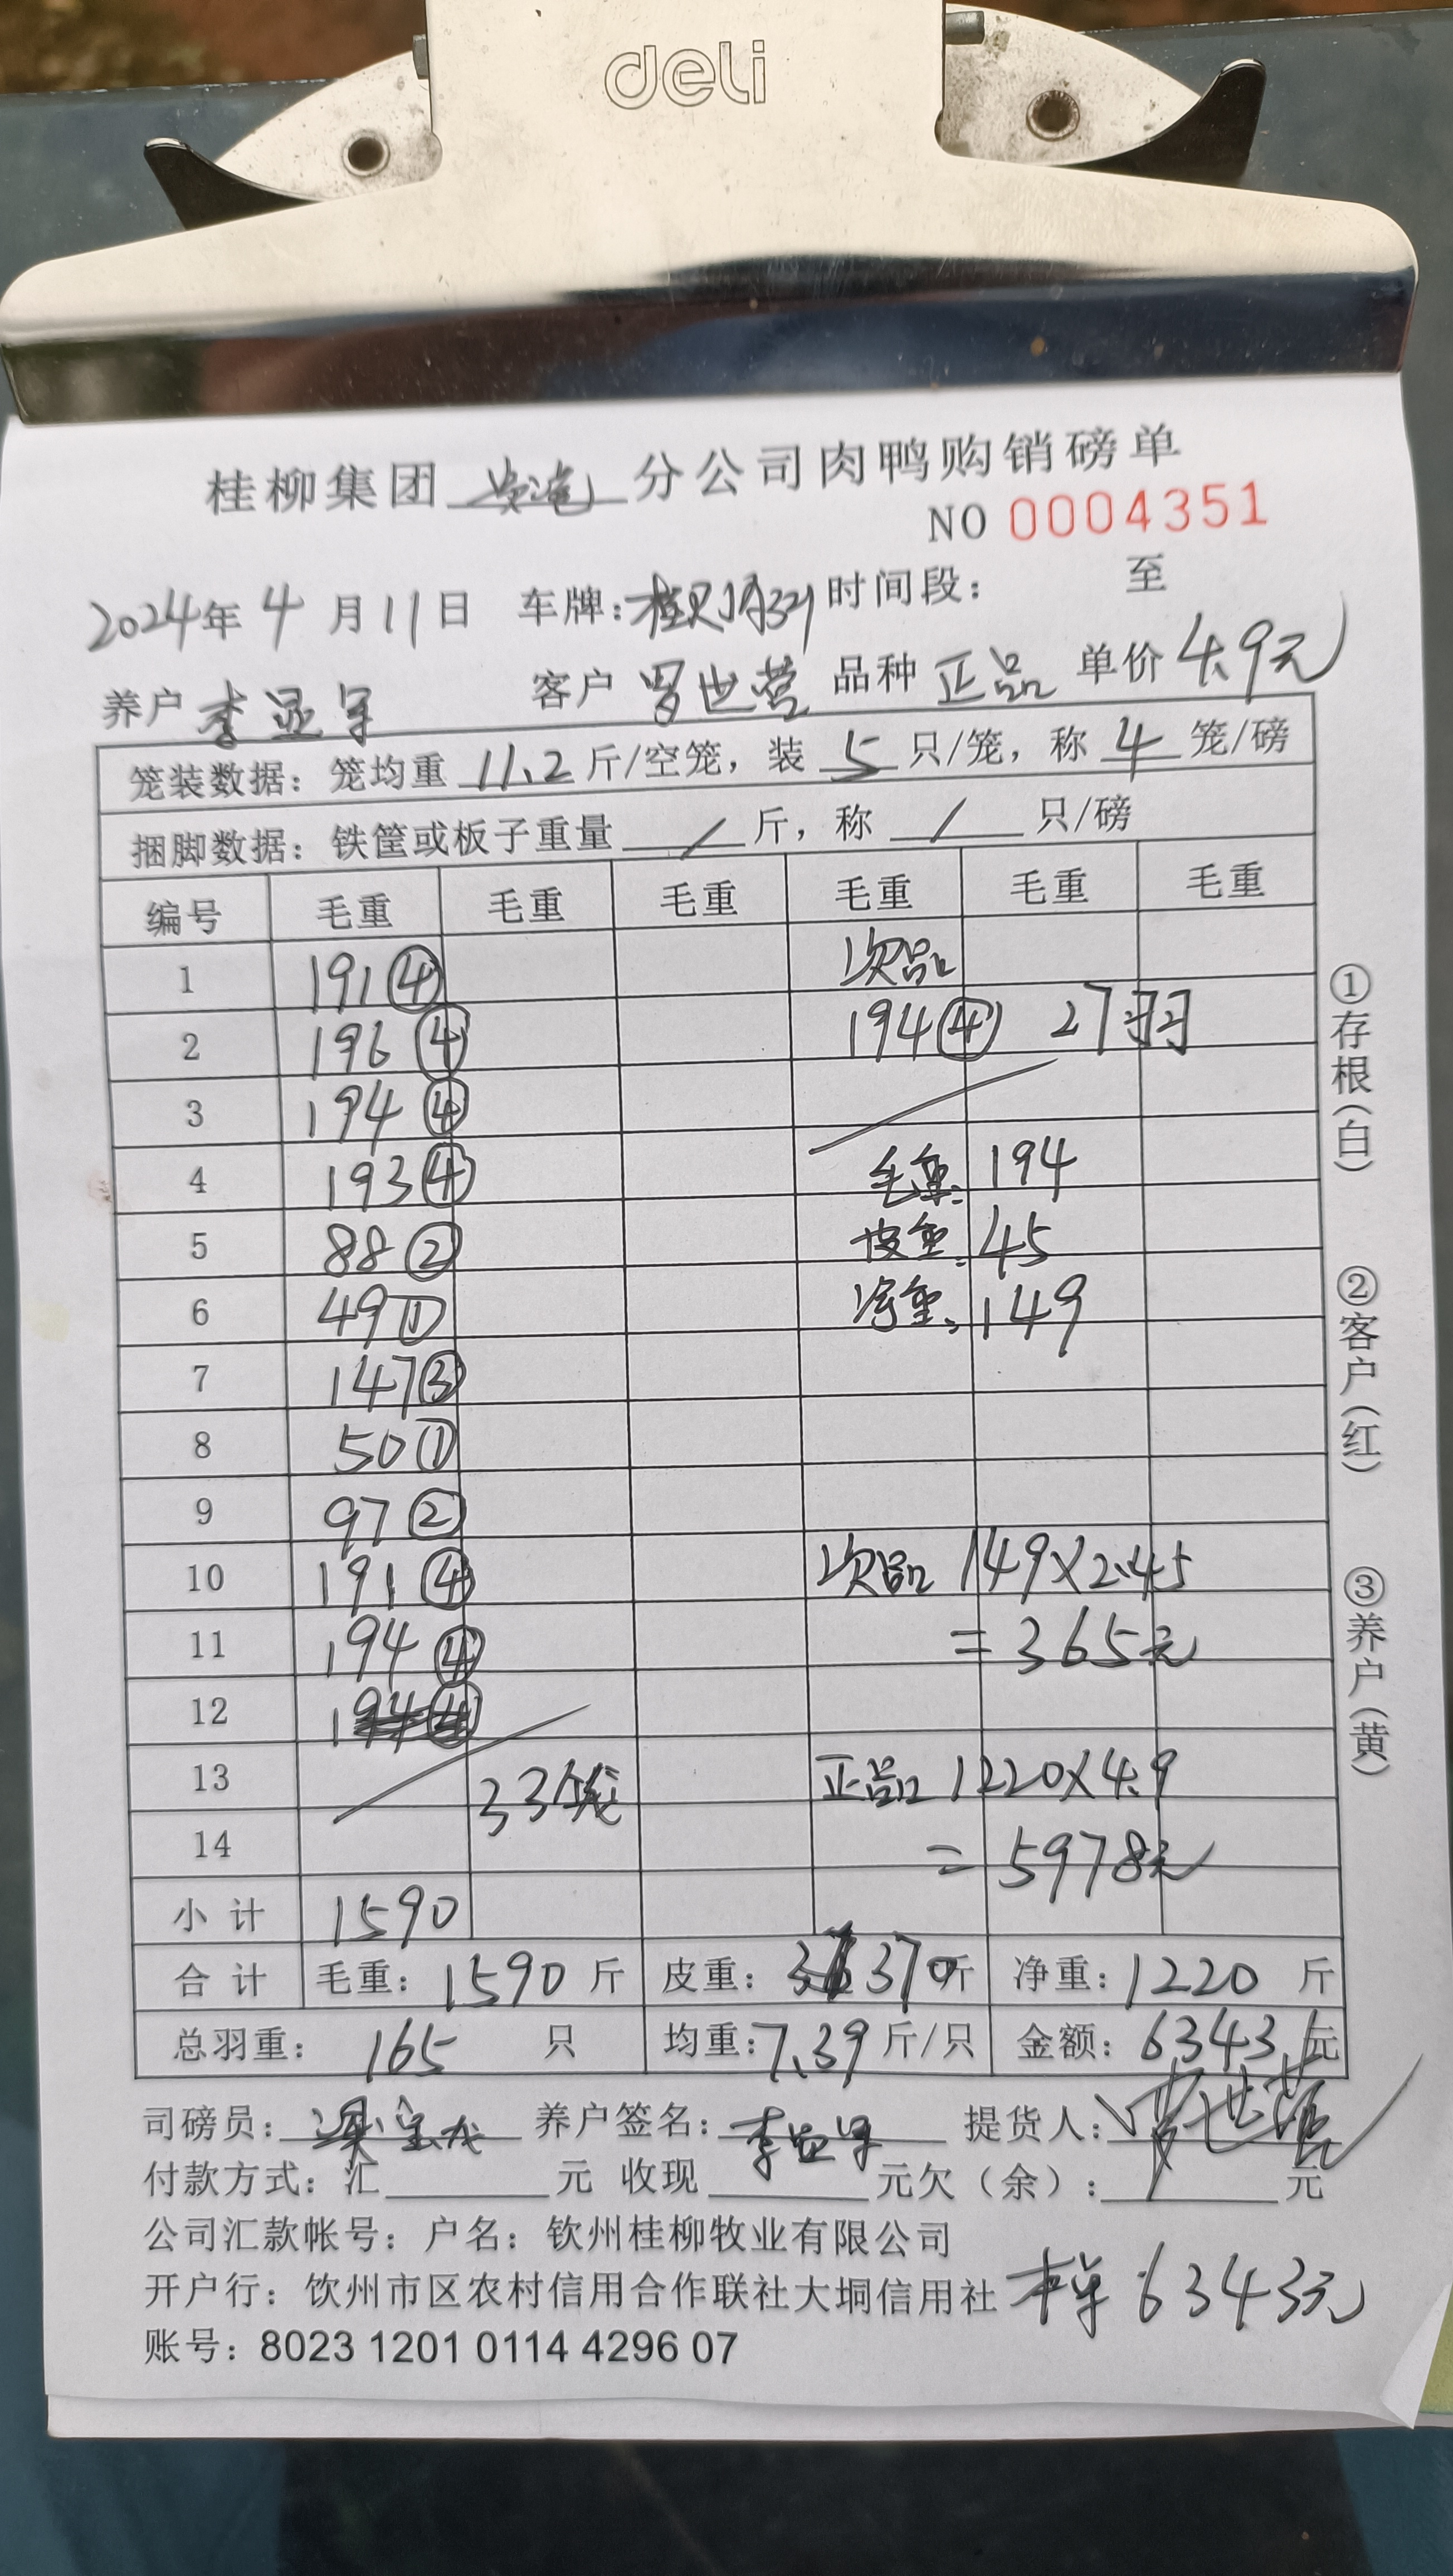 deli
桂柳集团 分公司肉鸭购销磅单
NO 0004351
2024年 4 月 11 日 车牌: 时间段: 至
养户 李显军 客户 罗世营 品种 正品 单价 4.9元
笼装数据: 笼均重 11.2 斤/空笼, 装 5 只/笼, 称 4 笼/磅
捆脚数据: 铁筐或板子重量 / 斤, 称 / 只/磅
编号 毛重 毛重 毛重 毛重 毛重 毛重
1 191④ 次品
2 196④ 194④ 27羽
3 194④
4 193④ 毛重: 194
5 88② 皮重: 45
6 49① 净重: 149
7 147③
8 50①
9 97②
10 191④ 次品 149×2.45
11 194④ =365元
12
13 33笼 正品 1220×4.9
14 =5978元
小计 1590
合计 毛重: 1590 斤 皮重: 370斤 净重: 1220 斤
总羽重: 165 只 均重: 7.39 斤/只 金额: 6343元
司磅员: 养户签名: 李显军 提货人: 罗世营
付款方式: 汇 元 收现 元欠(余): 元
公司汇款帐号: 户名: 钦州桂柳牧业有限公司
开户行: 钦州市区农村信用合作联社大垌信用社 本单 6343元
账号: 8023 1201 0114 4296 07
①存根(白)
②客户(红)
③养户(黄)